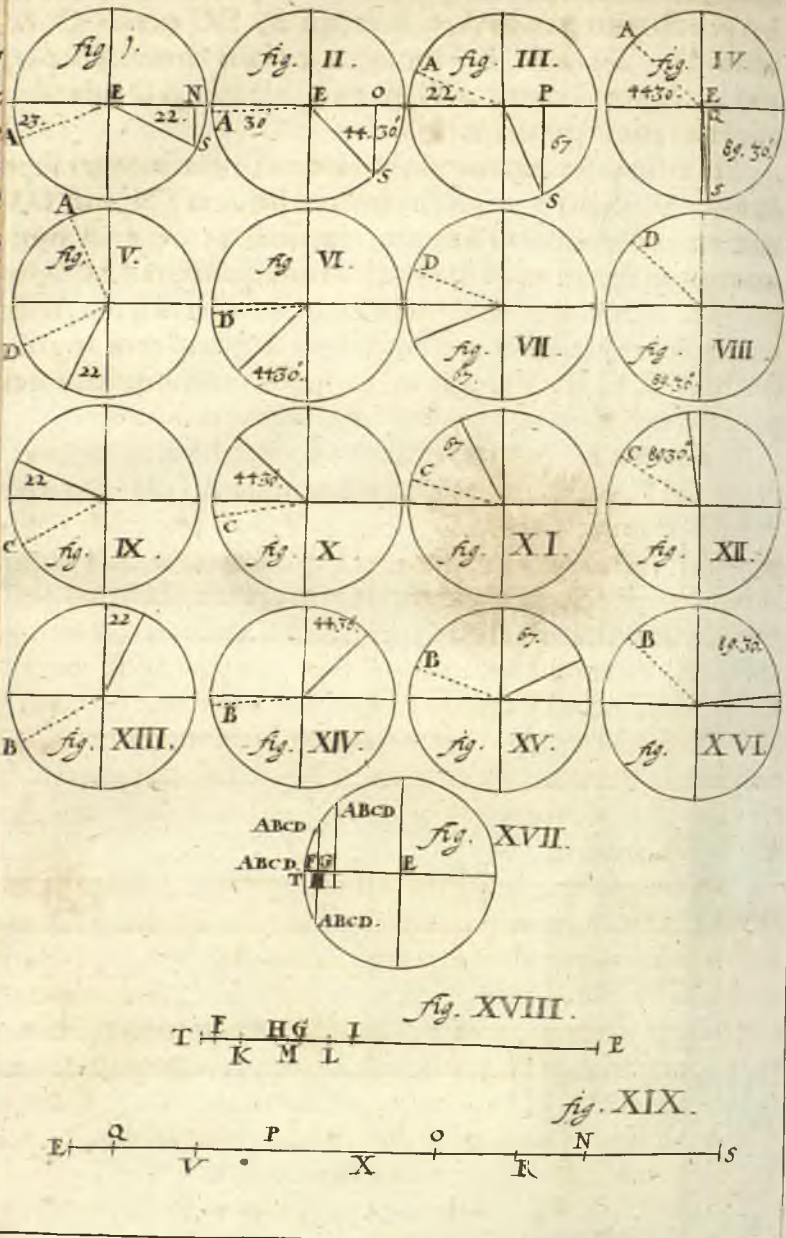 fig I.
E N
A 23. 22. S
fig. II.
E O
A 30' 44.30' S
fig. III.
A 22 P
67 S
fig. IV.
A 44 30' E
Q 89.30' S
fig. V.
A
D 22
fig VI.
D 44 30'
fig. VII
D 67
fig VIII
D 89.30'
fig. IX.
22 C
fig. X.
44 30' C
fig. XI.
67 C
fig. XII.
C 89 30'
fig. XIII.
22 B
fig. XIV.
44 30' B
fig. XV.
67. B
fig. XVI.
89.30' B
fig. XVII
ABCD
ABCD
ABCD. F G E
T H I
ABCD.
fig. XVIII.
T F H G I E
K M L
fig. XIX.
E Q P O N S
V X R